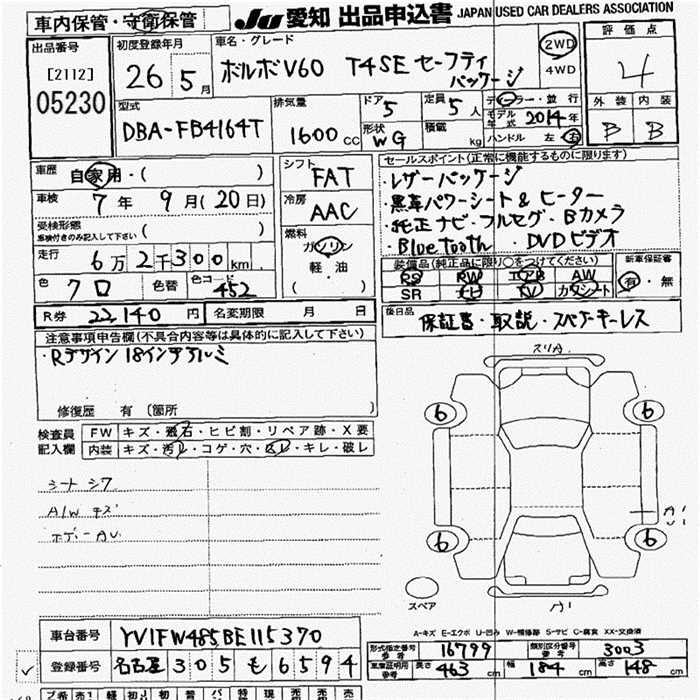 車内保管・守衛保管
JU 愛知 出品申込書 JAPAN USED CAR DEALERS ASSOCIATION
出品番号
[2112]
05230
初度登録年月
26年 5月
車名・グレード
ボルボV60 T4SE セーフティ
パッケージ
2WD
4WD
評価点
4
外装 内装
B B
型式
DBA-FB4164T
排気量
1600cc
ドア 5
形状 WG
定員 5人
積載 kg
ディーラー・並行
モデル年式 2014年
ハンドル 左 右
車歴 自家用・( )
車検 7年 9月(20日)
受検形態
車検付きのみ記入して下さい ( )
走行 6万2千300km
色 クロ 色替 色コード 452
シフト
FAT
冷房
AAC
燃料
ガソリン
軽・油
( )
セールスポイント(正常に機能するものに限ります)
・レザーパッケージ
・黒革パワーシート&ヒーター
・純正ナビ・フルセグ・Bカメラ
・Bluetooth DVDビデオ
装備品(純正品に限り○をつけてください)
PS PW エアB AW
SR ナビ TV カワシート
新車保証書
有・無
R券 22,140円 名変期限 月 日
後日品
保証書・取説・スペアキーレス
注意事項申告欄(不具合内容等は具体的に記入して下さい)
・Rデザイン18インチアルミ
修復歴 有 〔箇所 〕
検査員
記入欄
FW キズ・飛石・ヒビ割・リペア跡・X要
内装 キズ・汚レ・コゲ・穴・スレ・キレ・破レ
シートシワ
A/W キズ
ボディーAU
スリA
6 6
A1
U1
6 6
スペア
A1
A-キズ E-エクボ U-凹み W-補修跡 S-サビ C-腐食 XX-交換済
車台番号 YV1FW485BE1115370
登録番号 名古屋 305 も 6594
型式指定番号 参考 16799 類別区分番号 参考 3003
車庫証明用 参考 長さ 463cm 幅 184cm 高さ 148cm